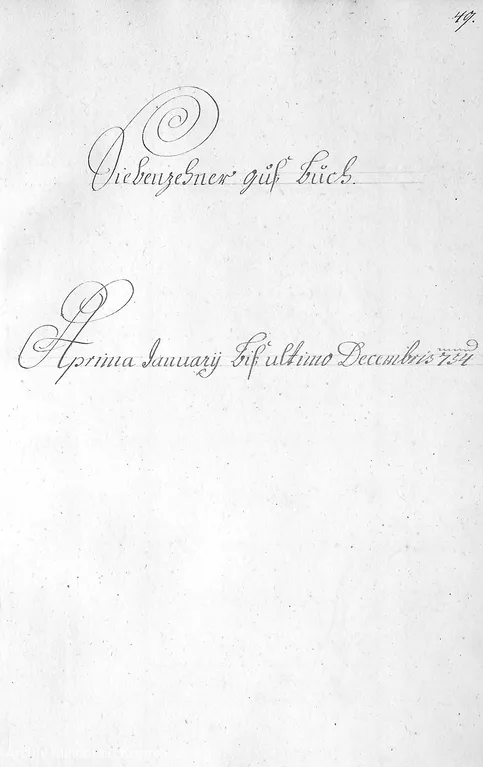 49.
Siebenzehner güß Büch.
A prima January biß ultimo Decembris 754